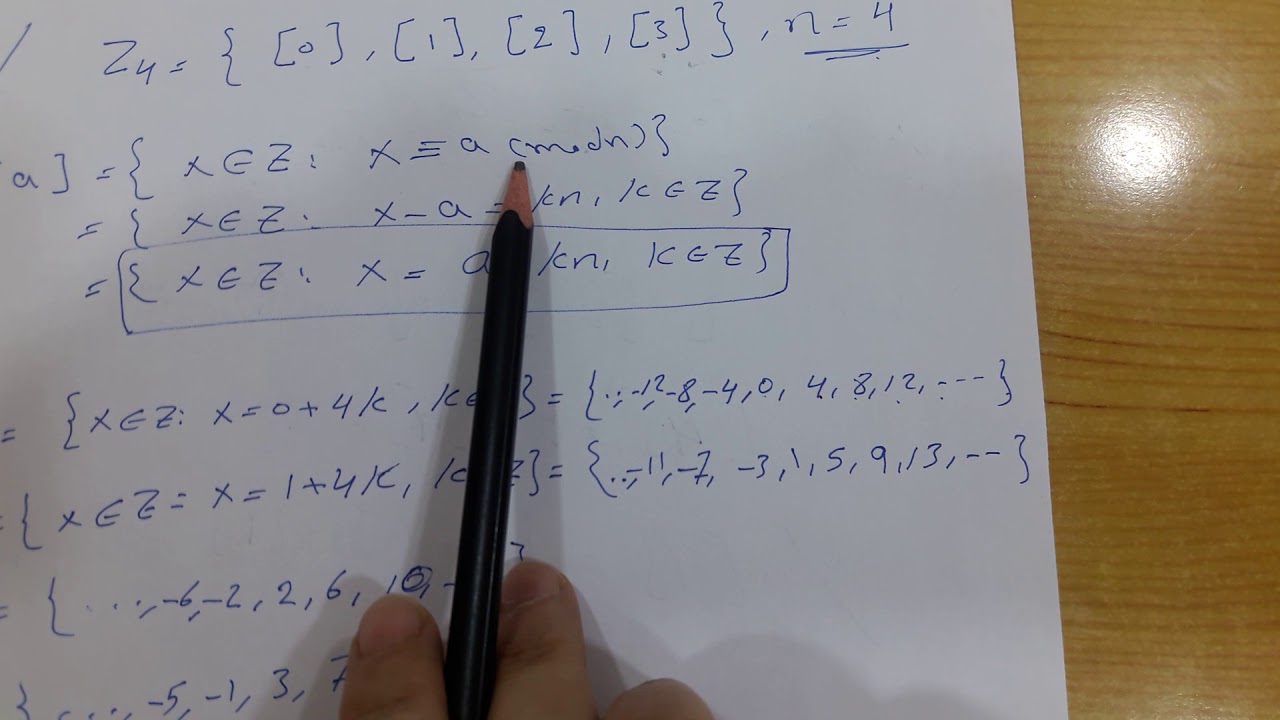 Z₄ = { [0], [1], [2], [3] }, n = 4
a] = { x ∈ Z : x ≡ a (mod n) }
= { x ∈ Z : x - a = kn, k ∈ Z }
= { x ∈ Z : x = a kn, k ∈ Z }
= { x ∈ Z : x = 0 + 4k, k ∈ } = { .., -12, -8, -4, 0, 4, 8, 12, --- }
= { x ∈ Z = x = 1 + 4k, k Z } = { .., -11, -7, -3, 1, 5, 9, 13, -- }
= { ..., -6, -2, 2, 6, 10, - }
{ ..., -5, -1, 3, 7